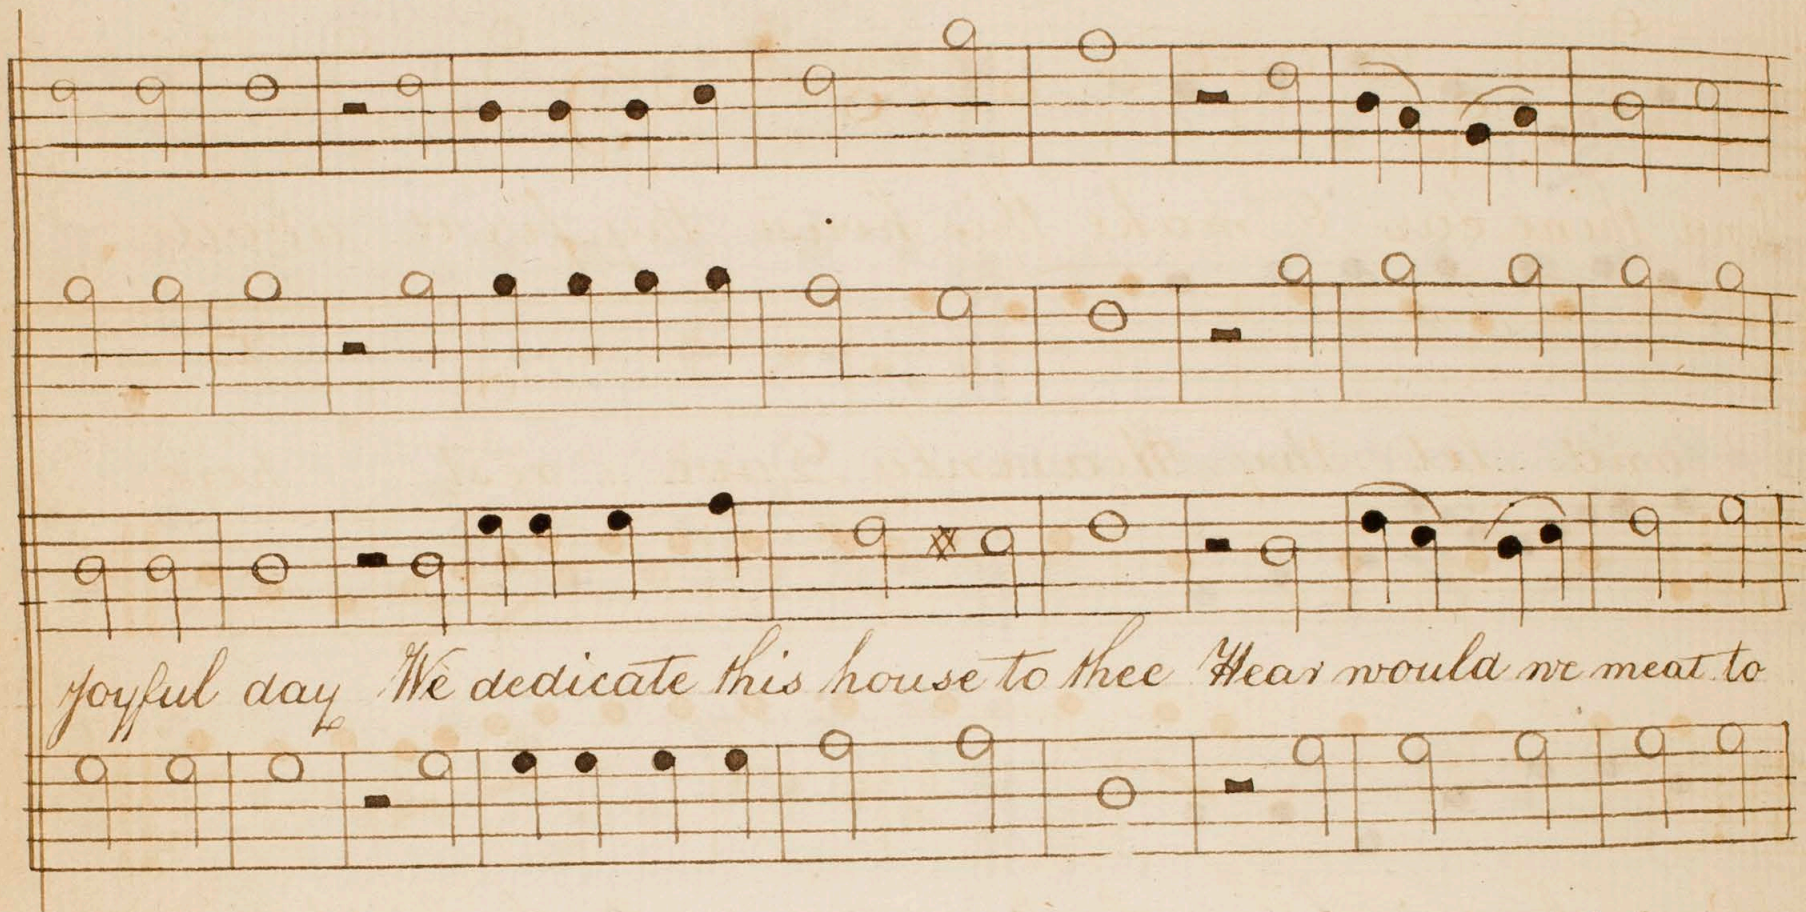 Joyful day We dedicate this house to thee Hear would we meat to